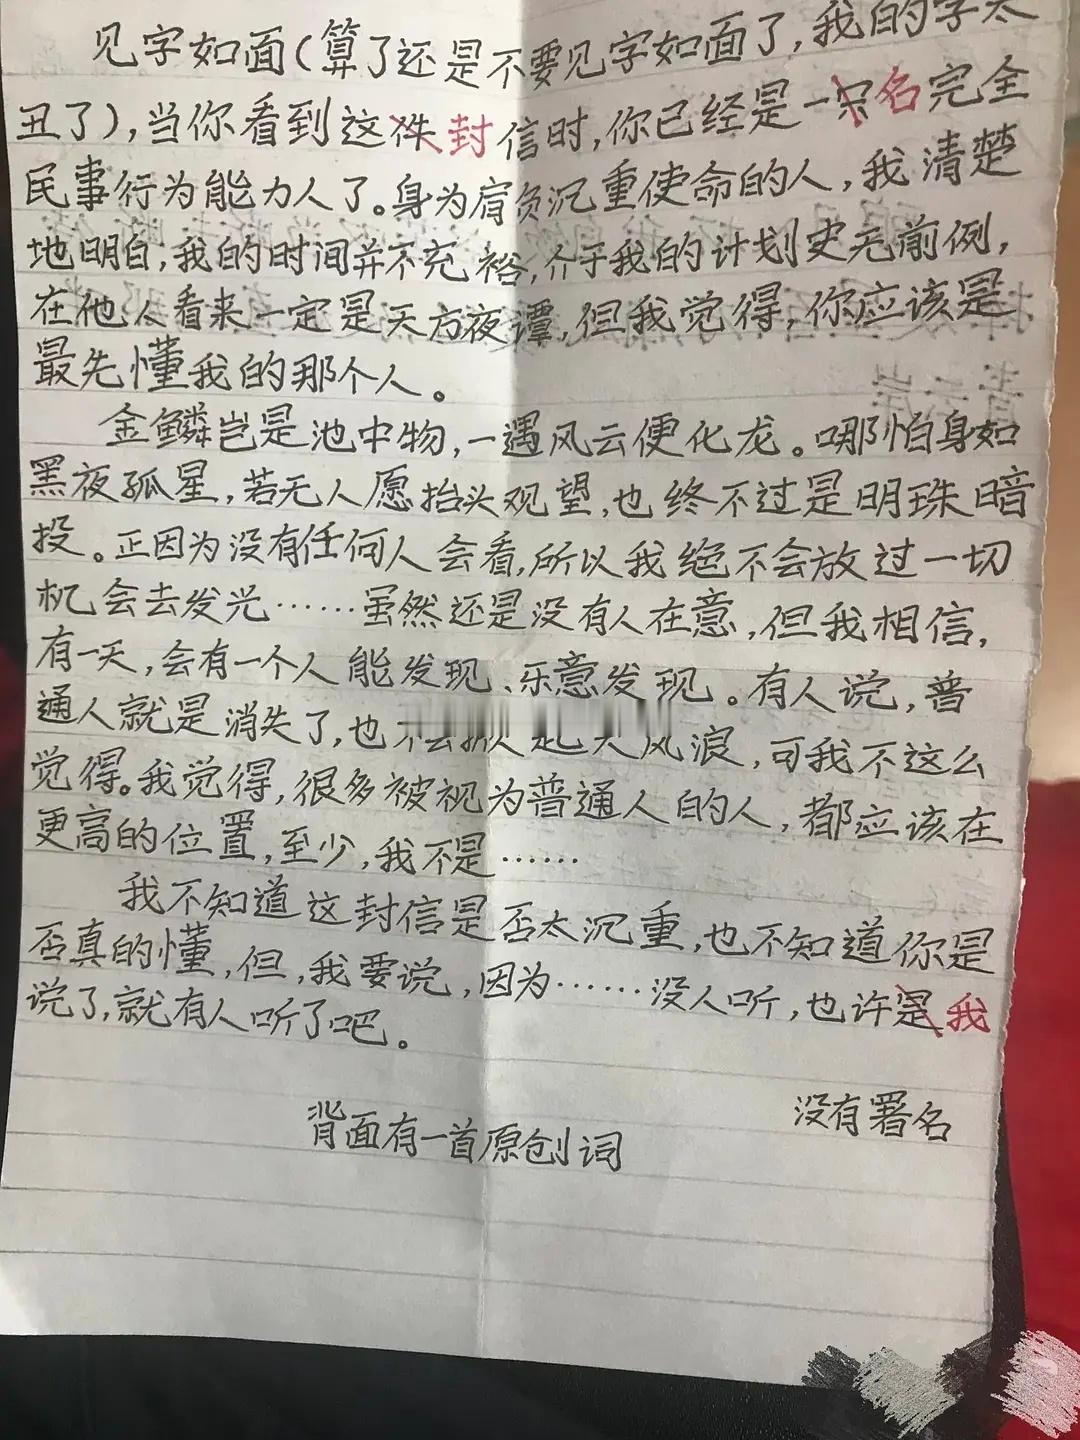 见字如面(算了还是不要见字如面了,我的字太
丑了),当你看到这封信时,你已经是一名完全
民事行为能力人了。身为肩负沉重使命的人,我清楚
地明白,我的时间并不充裕,介于我的计划史无前例,
在他人看来一定是天方夜谭,但我觉得,你应该是
最先懂我的那个人。
金鳞岂是池中物,一遇风云便化龙。哪怕身如
黑夜孤星,若无人愿抬头观望,也终不过是明珠暗
投。正因为没有任何人会看,所以我绝不会放过一切
机会去发光……虽然还是没有人在意,但我相信,
有一天,会有一个人能发现、乐意发现。有人说,普
通人就是消失了,也不会掀起大风浪,可我不这么
觉得。我觉得,很多被视为普通人的人,都应该在
更高的位置,至少,我不是……
我不知道这封信是否太沉重,也不知道你是
否真的懂,但,我要说,因为……没人听,也许我
说了,就有人听了吧。
没有署名
背面有一首原创词